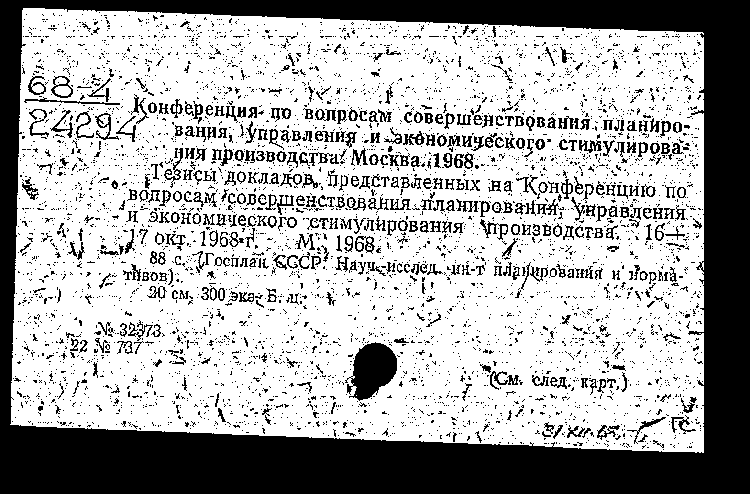 68-4
24294
Конференция по вопросам совершенствования планиро-
вания, управления и экономического стимулирова-
ния производства. Москва. 1968.
Тезисы докладов, представленных на Конференцию по
вопросам совершенствования планирования, управления
и экономического стимулирования производства. 16—
17 окт. 1968 г. М., 1968.
88 с. (Госплан СССР. Науч.-исслед. ин-т планирования и норма-
тивов).
20 см. 300 экз. Б. ц.
№ 32373
22 № 737
(См. след. карт.)